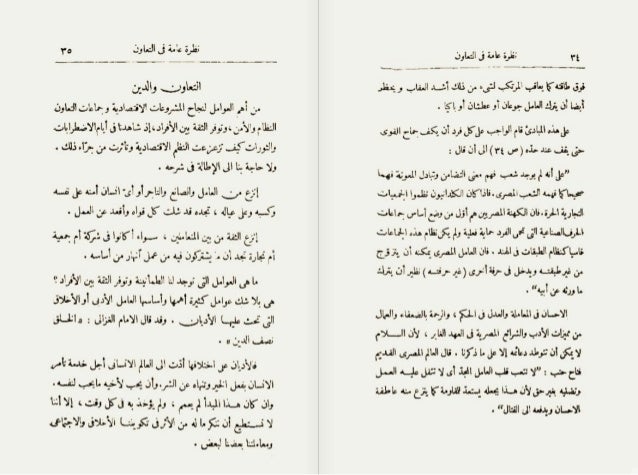 ٣٤ نظرة عامة فى التعاون
فوق طاقته كما يعاقب المرتكب لشىء من ذلك أشد العقاب ويحظر
أيضا أن يترك العامل جوعان أو عطشان أو باكيا .
على هذه المبادئ قام الواجب على كل فرد أن يكف جماح القوى
حتى يقف عند حده (ص ٣٤) الى أن قال :
"على أنه لم يوجد شعب فهم معنى التضامن وتبادل المعونة فهما
صحيحا كما فهمه الشعب المصرى. فاذا كان الكلدانيون نظموا الجمعيات
التجارية الحرة. فان الكهنة المصريين هم أول من وضع أساس جماعات
الحرف الصناعية التى تحمى الفرد حماية فعلية ولم يكن نظام هذه الجماعات
قاسيا كنظام الطبقات فى الهند . فان العامل المصرى يمكنه أن يتزوج
من غير طبقته ويدخل فى حرفة أخرى (غير حرفته) نظير أن يترك
ما ورثه عن أبيه" .
الاحسان فى المعاملة والعدل فى الحكم ، والرحمة بالضعفاء والعمال
من مميزات الأدب والشرائع المصرية فى العهد الغابر ، لأن السلام
لا يمكن أن تتوطد دعائمه إلا على ما ذكرنا . قال العالم المصرى القديم
فتاح حتب : "لا تتعب قلب العامل المجد أى لا تثقل عليه العمل
وتضنيه بغير حق لأن هذا يجعله يستعد للمقاومة كما ينزع منه عاطفة
الاحسان ويدفعه الى القتال" .
نظرة عامة فى التعاون ٣٥
التعاون والدين
من أهم العوامل لنجاح المشروعات الاقتصادية وجماعات التعاون
النظام والأمن، وتوفر الثقة بين الأفراد، إذ شاهدنا فى أيام الاضطرابات
والثورات كيف تزعزعت النظم الاقتصادية وتأثرت من جرّاء ذلك .
ولا حاجة بنا الى الإطالة فى شرحه .
إنزع من العامل والصانع والتاجر أو أى انسان أمنه على نفسه
وكسبه وعلى عياله ، تجده قد شلت كل قواه وأقعد عن العمل .
إنزع الثقة من بين المتعاملين ، سواء أكانوا فى شركة أم جمعية
أم تجارة تجد أن ما يشتركون فيه من عمل أنهار من أساسه .
ما هى العوامل التى توجد لنا الطمأنينة وتوفر الثقة بين الأفراد ؟
هى بلا شك عوامل كثيرة أهمها وأساسها العامل الأدبى أو الأخلاق
التى تحث عليها الأديان . وقد قال الامام الغزالى : « الخلق
نصف الدين » .
فالأديان على اختلافها أدّت الى العالم الانسانى أجل خدمة تأمر
الانسان بفعل الخير وتنهاه عن الشر. وأن يحب لأخيه ما يحب لنفسه.
وإن كان هذا المبدأ لم يعمم ، ولم يؤخذ به فى كل وقت ، إلا أننا
لا نستطيع أن ننكر ما له من الأثر فى تكويننا الأخلاقى والاجتماعى
ومعاملتنا بعضنا لبعض .